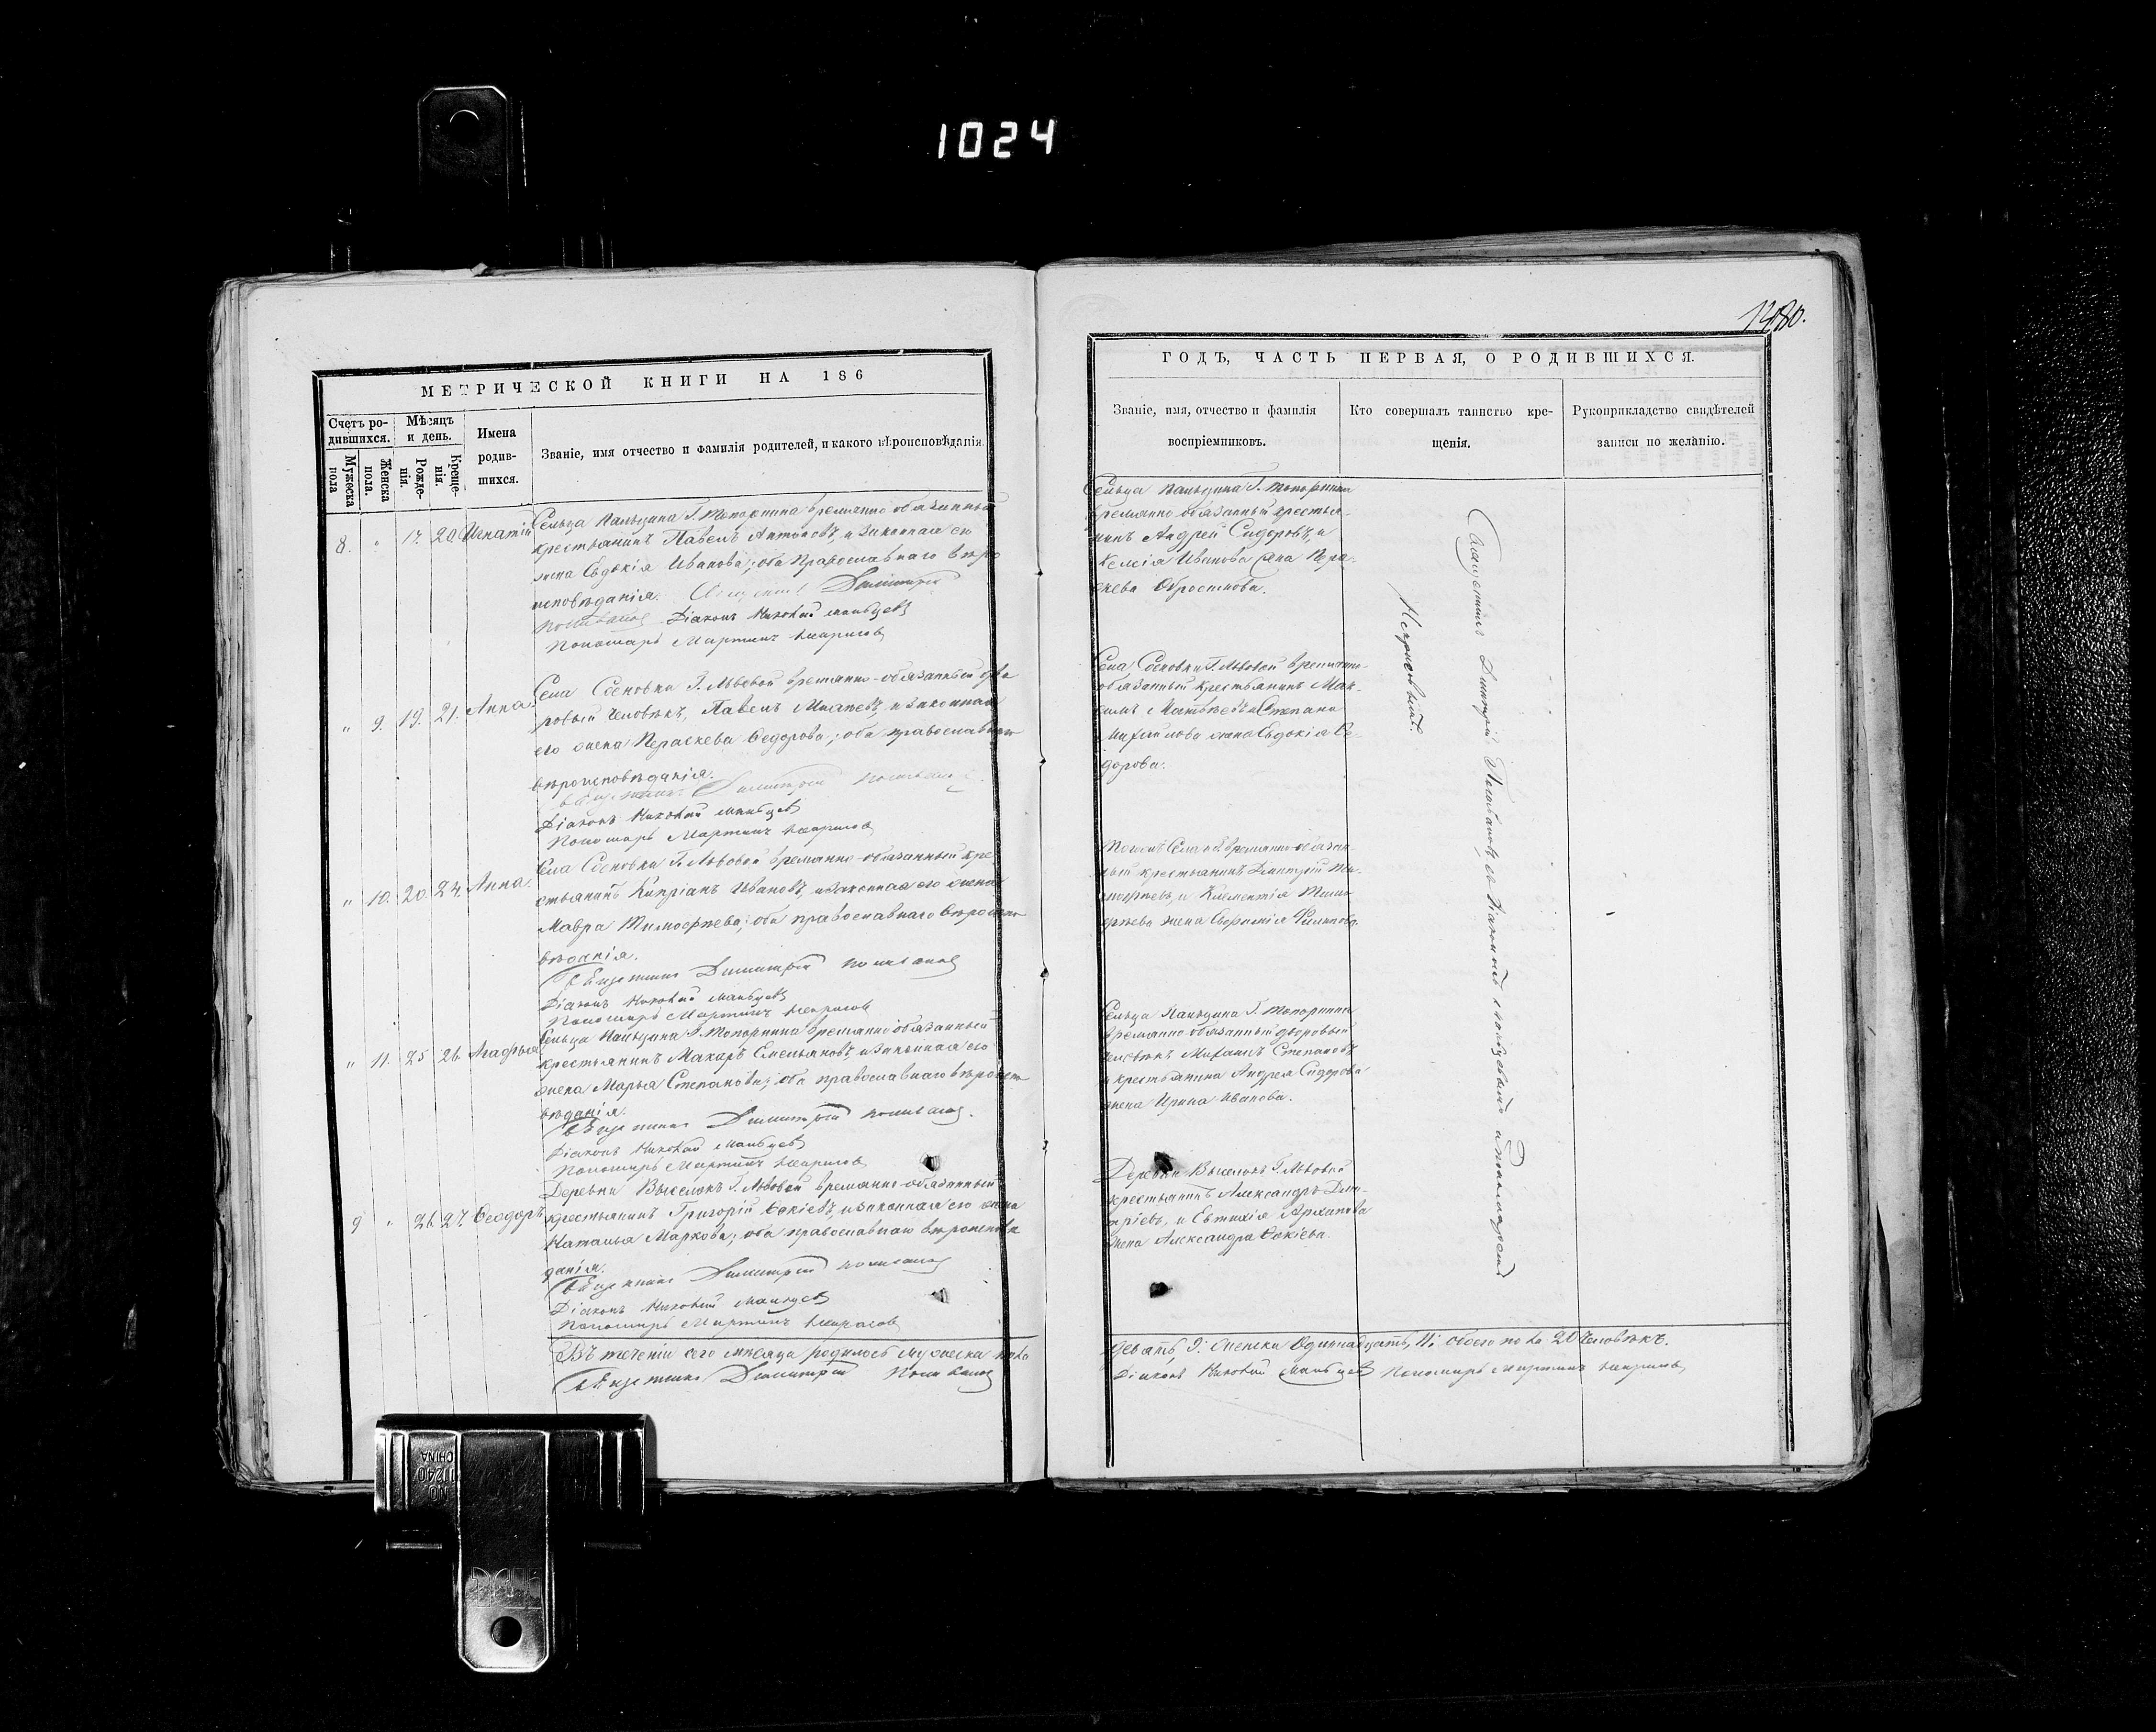 1024
1480.
МЕТРИЧЕСКОЙ КНИГИ НА 186
Счетъ ро-
дившихся.
Мужеска
пола
Женска
пола.
Мѣсяцъ
и день.
Рожде-
нія.
Креще-
нія.
Имена
родив-
шихся.
Званіе, имя отчество и фамилія родителей, и какого вѣроисповѣданія.
8. " 17. 20. Игнатій
Сельца Пальцина Г. Топорнина временно обязанный
крестьянинъ Павелъ Антоновъ, и законная его
жена Евдокія Иванова; оба Православнаго вѣро
исповѣданія. Димитрій
Діаконъ Николай Мальцевъ
Пономарь Мартинъ
" 9. 19. 21. Анна.
Села Сосновки Г. Львовой временно-обязанный дво
ровый человѣкъ, Павелъ, и законная
его жена Параскева Ѳедорова; оба православнаго
вѣроисповѣданія.
Священникъ Димитрій
Діаконъ Николай Мальцевъ
Пономарь Мартинъ
" 10. 20. 24. Анна.
Села Сосновки Г. Львовой временно-обязанный кре
стьянинъ Кипріанъ Ивановъ, и законная его жена
Мавра Тимофѣева; оба православнаго вѣроиспо
вѣданія.
Священникъ Димитрій
Діаконъ Николай Мальцевъ
Пономарь Мартинъ
" 11. 25 26. Агафья
Сельца Пальцина Г. Топорнина временно обязанный
крестьянинъ Макаръ Емельяновъ, и законная его
жена Марья Степанова; оба православнаго вѣроиспо
вѣданія.
Священникъ Димитрій
Діаконъ Николай Мальцевъ
Пономарь Мартинъ
9 " 26. 27. Ѳеодоръ
Деревни Выселокъ Г. Львовой временно-обязанный
крестьянинъ Григорій Ѳокіевъ, и законная его жена
Наталья Маркова; оба православнаго вѣроисповѣ
данія.
Священникъ Димитрій
Діаконъ Николай Мальцевъ
Пономарь Мартинъ
Въ теченіи сего мѣсяца родилось мужеска пола
Священникъ Димитрій
ГОДЪ, ЧАСТЬ ПЕРВАЯ, О РОДИВШИХСЯ.
Званіе, имя, отчество и фамилія
воспріемниковъ.
Кто совершалъ таинство кре-
щенія.
Рукоприкладство свидѣтелей
записи по желанію.
Сельца Пальцина Г. Топорнина
временно-обязанный крестья-
нинъ Андрей Сидоровъ, и
Иванова жена Пара-
скева
Села Сосновки Г. Львовой временно-
обязанный крестьянинъ Мак-
симъ Матвѣевъ и Степана
Михайлова жена Евдокія Ѳе-
дорова.
временно-обязан-
ный крестьянинъ Димитрій Ти-
мофѣевъ, и Климентія Тимо
фѣева жена Евфимія Филипова.
Сельца Пальцина Г. Топорнина
временно-обязанный дворовый
человѣкъ Михаилъ Степановъ
и крестьянина Андрея Сидорова
жена Ирина Иванова.
Деревни Выселокъ Г. Львовой
крестьянинъ Александръ Дми-
тріевъ, и Евтихія Архипова
жена Александра Ѳокіева.
Священникъ Димитрій съ діакономъ Мальцевымъ и пономаремъ
девять 9: женска Одиннадцать, 11; обоего пола 20 человѣкъ.
Діаконъ Николай Мальцевъ Пономарь Мартинъ
NO.
11240
CHINA